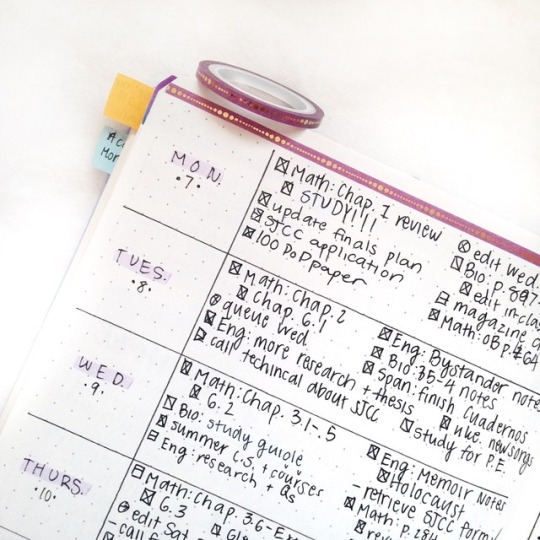 MON.
•7•
Math: Chap. 1 review
STUDY!!!
update finals plan
SJCC application
100 DoD paper
edit wed.
Bio: p. 897-
edit in-clas
magazine
Math: OB p.
TUES.
•8•
Math: Chap. 2
Chap. 6.1
queue wed.
Eng: more research + thesis
call techincal about SJCC
Eng: Bystander notes
Bio: 35-4 notes
Span: finish Cuadernos
uke. new songs
study for P.E.
WED.
•9•
Math: Chap. 3.1-.5
6.2
Bio: study guide
summer C.S. + courses
Eng: research + qs
Eng: Memoir Notes
Holocaust
- retrieve SJCC form
Math: p. 284
THURS.
•10•
Math: Chap. 3.6-
6.3
edit Sat.
- call